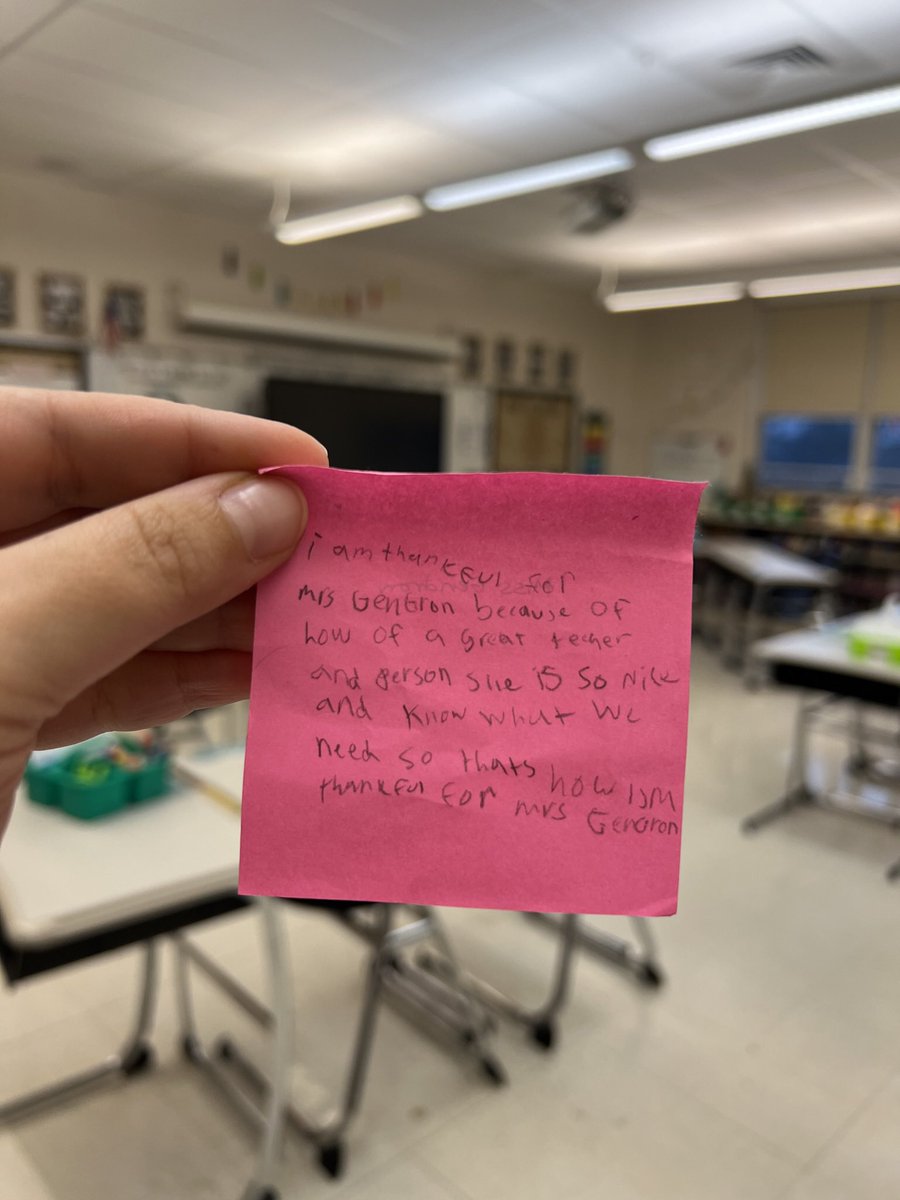 i am thankful for
mrs Gengron because of
how of a great techer
and person she is so Nice
and know what we
need so thats how ism
thankful for mrs Gengron